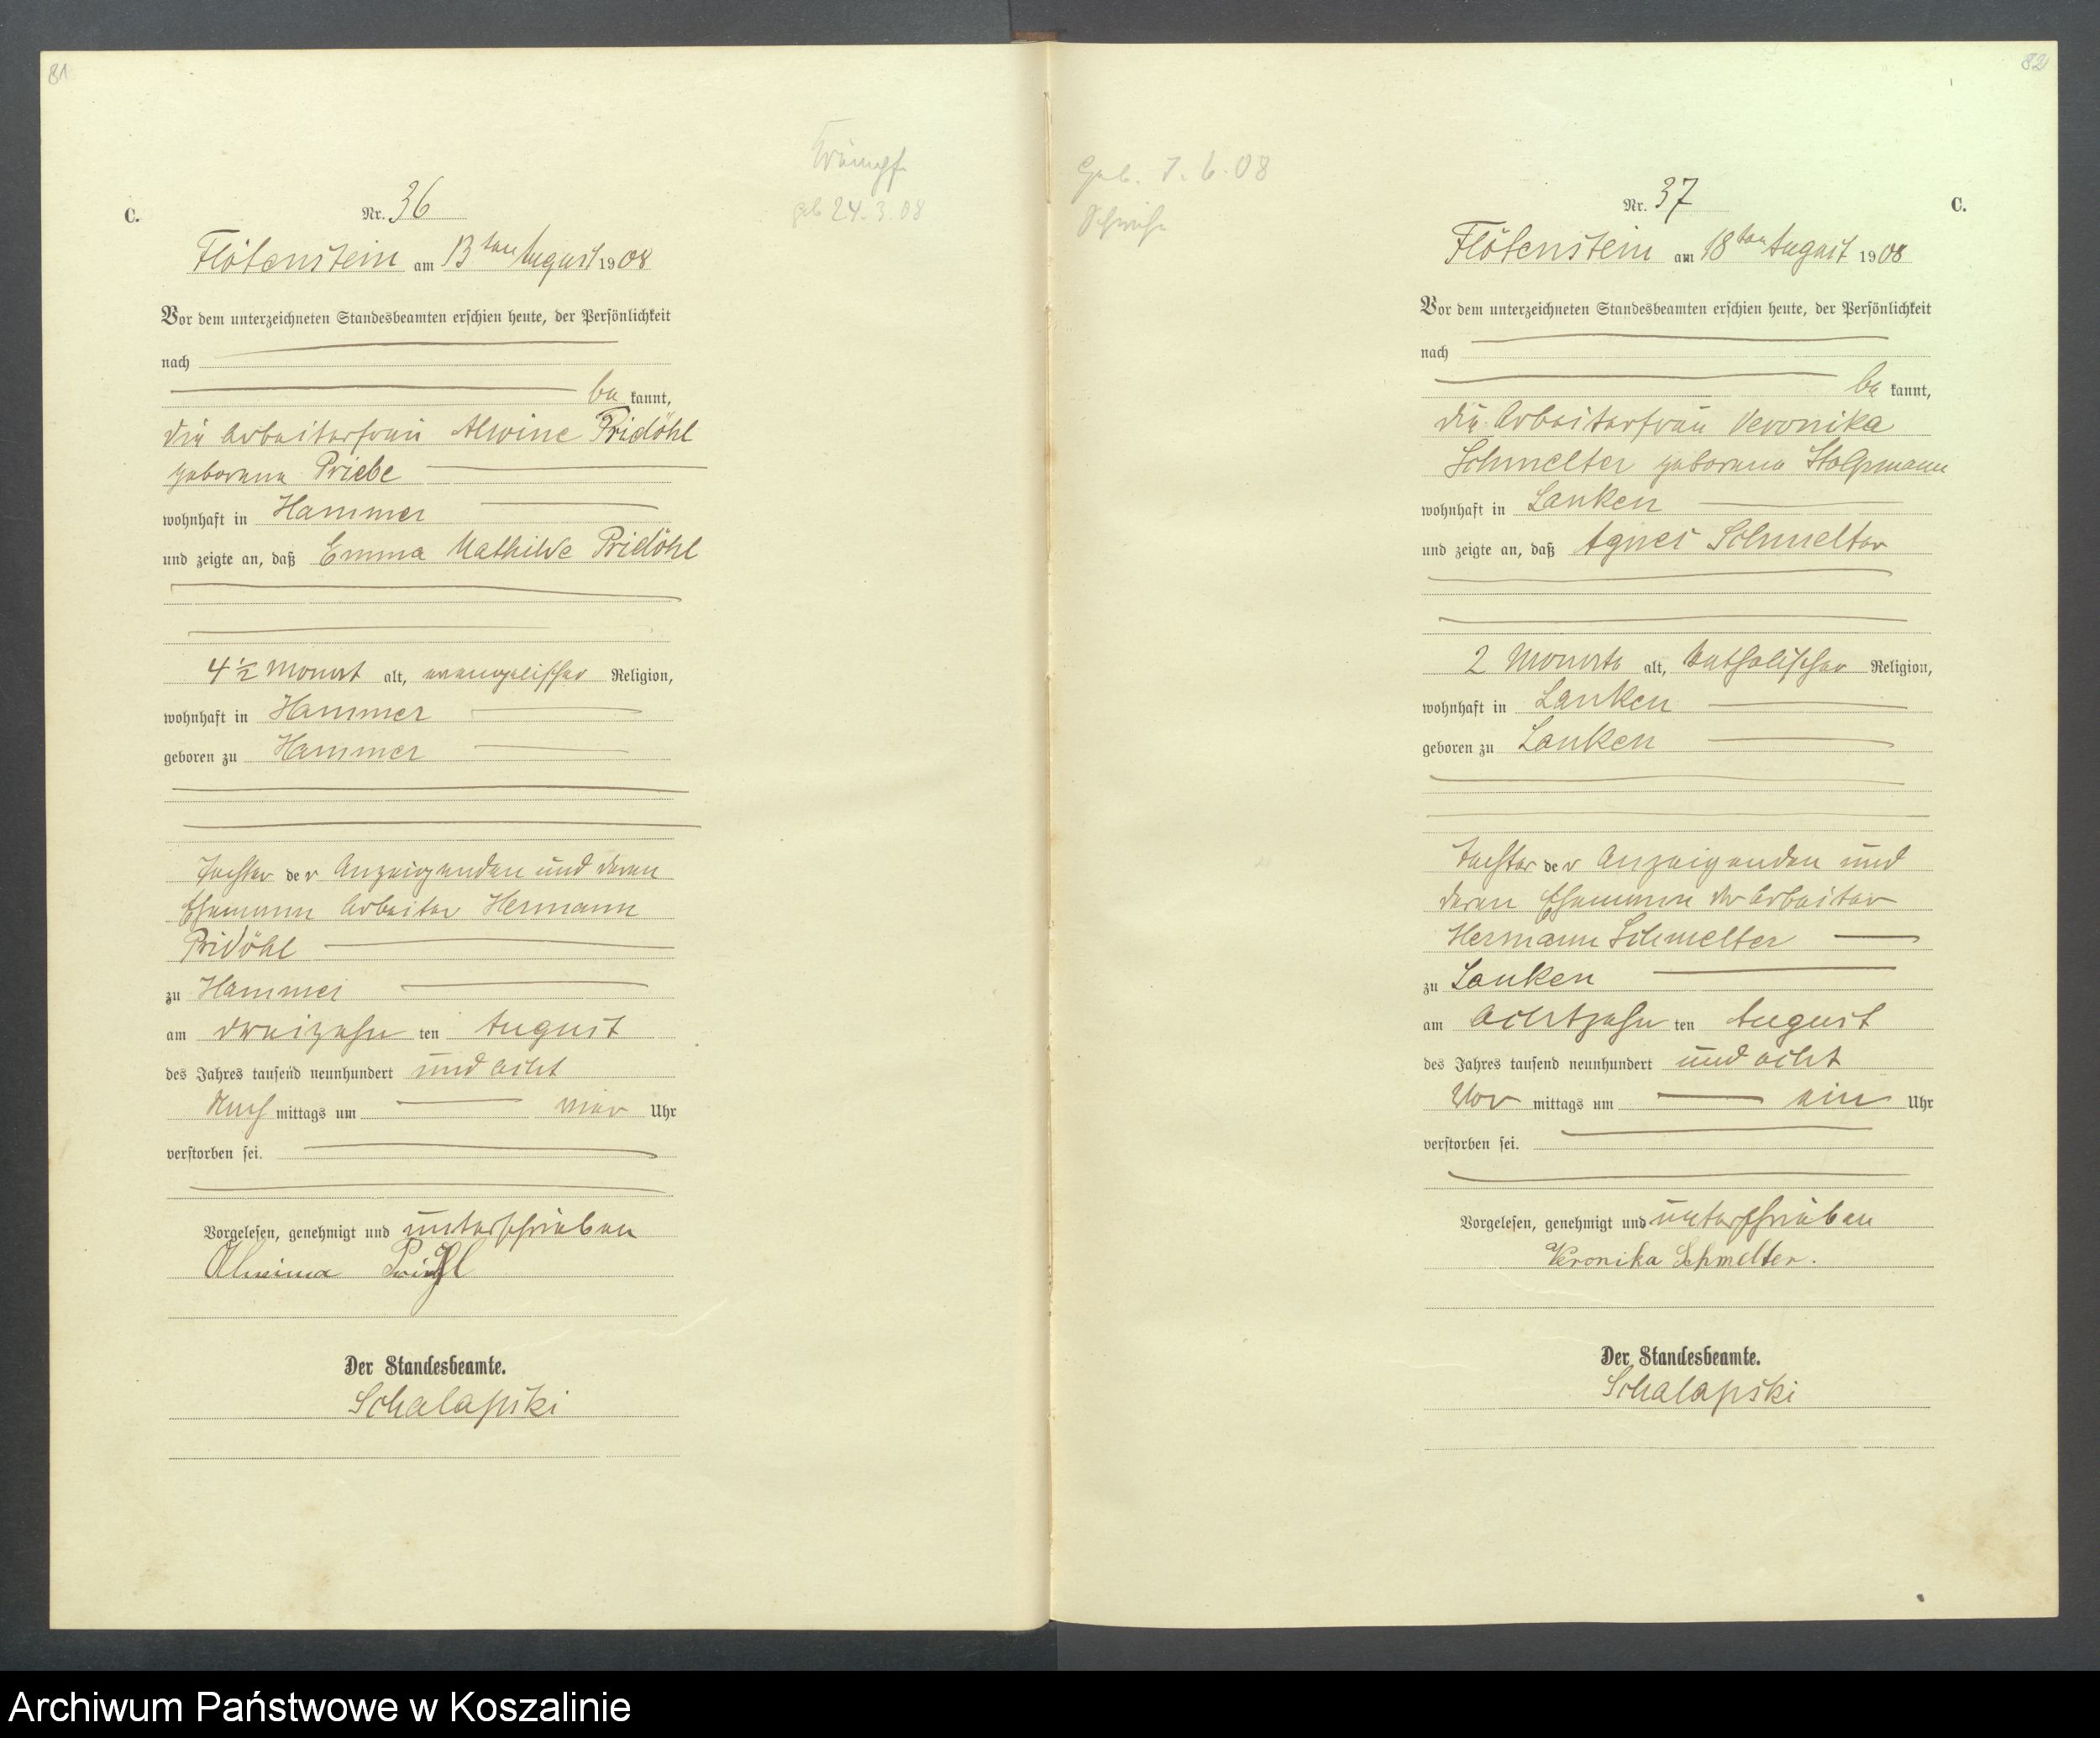 81
Krämpfe
geb 24.3.08
C.
Nr. 36
Flötenstein am 13ten August 1908
Vor dem unterzeichneten Standesbeamten erschien heute, der Persönlichkeit
nach
be kannt,
die Arbeiterfrau Alwine Pridöhl
geborene Priebe
wohnhaft in Hammer
und zeigte an, daß Emma Mathilde Pridöhl
4 1/2 Monat alt, evangelischer Religion,
wohnhaft in Hammer
geboren zu Hammer
Tochter der Anzeigenden und deren
Ehemann Arbeiter Hermann
Pridöhl
zu Hammer
am dreizehn ten August
des Jahres tausend neunhundert und acht
Nach mittags um vier Uhr
verstorben sei.
Vorgelesen, genehmigt und unterschrieben
Der Standesbeamte.
Schalapski
82
Geb. 7.6.08
Schwäche
Nr. 37
C.
Flötenstein am 18ten August 1908
Vor dem unterzeichneten Standesbeamten erschien heute, der Persönlichkeit
nach
be kannt,
die Arbeiterfrau Veronika
Schmelter geborene Stolpmann
wohnhaft in Lanken
und zeigte an, daß Agnes Schmelter
2 Monate alt, katholischer Religion,
wohnhaft in Lanken
geboren zu Lanken
Tochter der Anzeigenden und
deren Ehemann der Arbeiter
Hermann Schmelter
zu Lanken
am achtzehn ten August
des Jahres tausend neunhundert und acht
Vor mittags um ein Uhr
verstorben sei.
Vorgelesen, genehmigt und unterschrieben
Veronika Schmelter.
Der Standesbeamte.
Schalapski
Archiwum Państwowe w Koszalinie